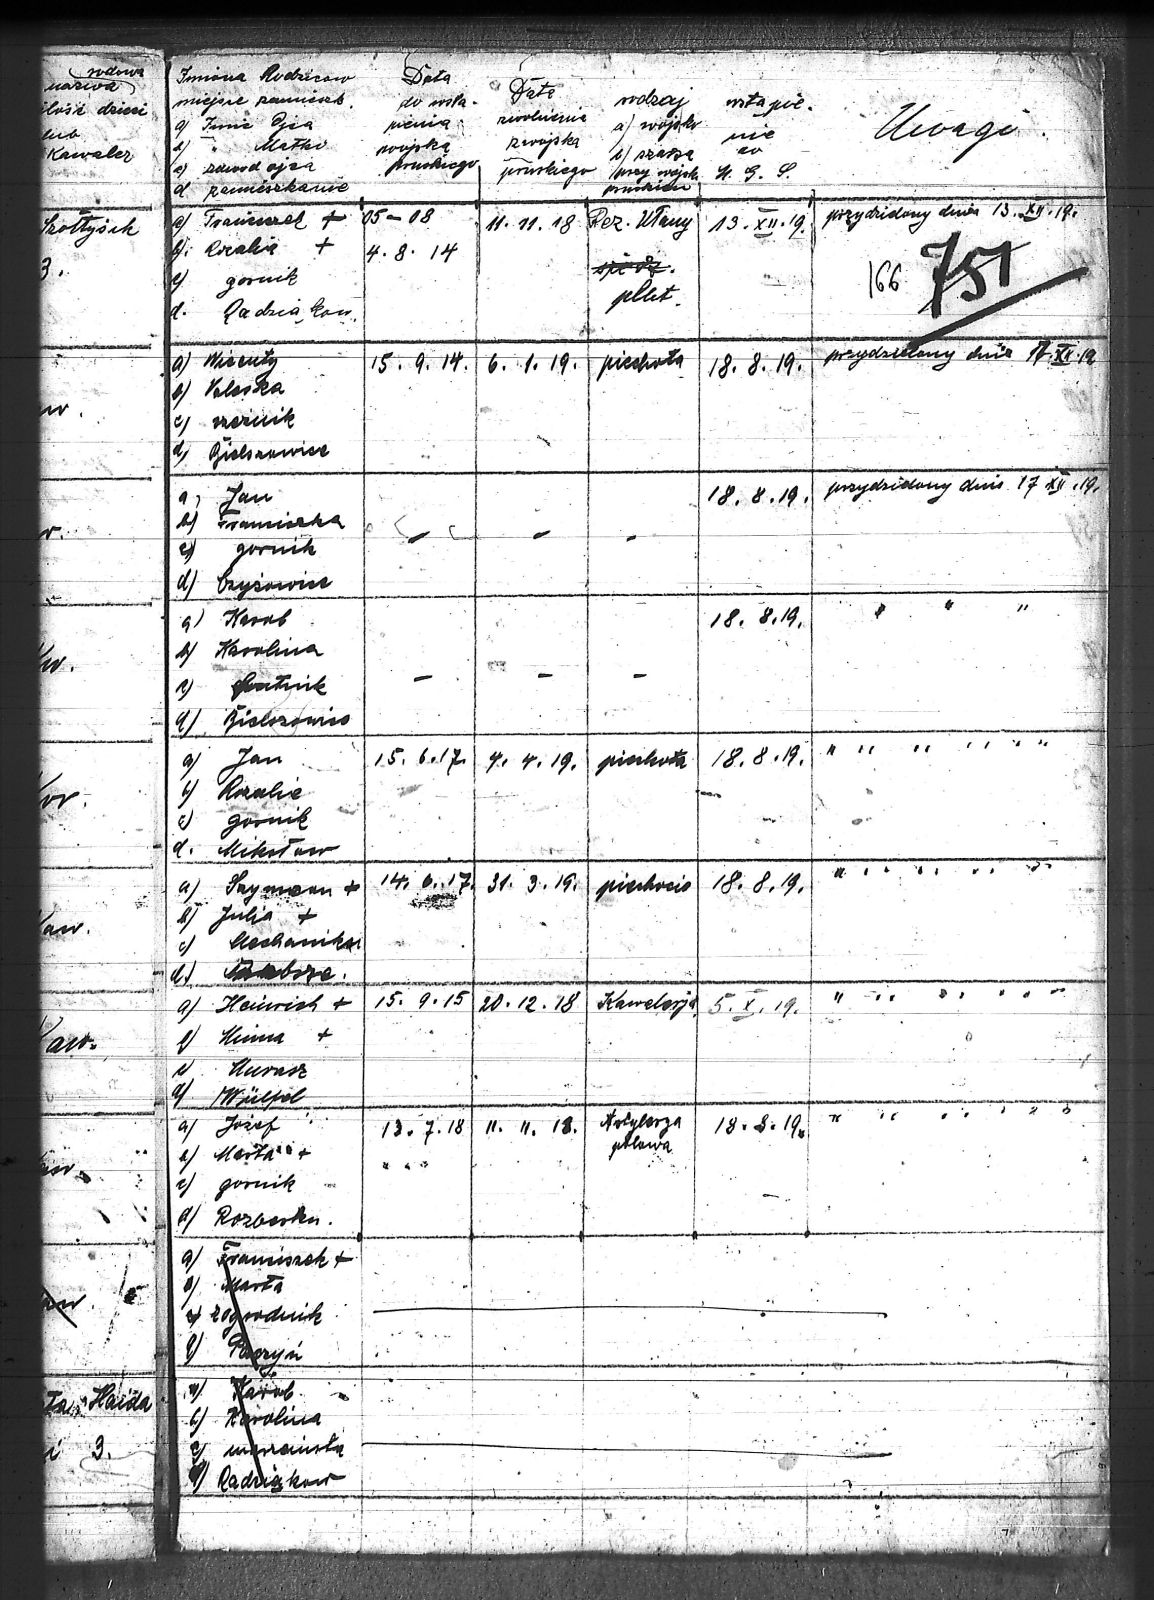 rodowe
nazwa
ilość dzieci
lub
Kawaler
Imiona Rodziców
miejsce zamieszk.
a) Imię Ojca
b) " Matki
c) zawód ojca
d. zamieszkanie
Data
do wstą-
pienia
wojska
pruskiego
Data
zwolnienia
z wojska
pruskiego
rodzaj
a) wojska
b) szarża
przy wojsk
pruskiem
wstąpie-
nie
do
U. G. S.
Uwagi.
Szołtysik
3.
a) Franciszek + 05-08 11.11.18 Rez. Ułany 13.XII.19. przydzielony dnia 13.XII.19.
b. Rozalia + 4.8.14
c) gornik plut. 166 751
d. Radzionkow.
a) Wicenty 15.9.14. 6.1.19. piechota 18.8.19. przydzielony dnia 17.XII.19
b) Valeska
c)
d) Bielszowice
a) Jan 18.8.19. przydzielony dnia 17 XII.19.
b) Franciszka - - -
c) gornik
d) Czyżowice
a) Karol 18.8.19. " " "
b) Karolina
c) - - -
d) Bielszowice
a) Jan 15.6.17. 4.4.19. piechota 18.8.19. " " " " " "
b) Rozalie
c) gornik
d. Mikołow
a) Szymon + 14.6.17. 31.3.19. piechocie 18.8.19. " " " " " "
b) Julia +
c) Mechanik
d)
Kaw.
a) Heinrich + 15.9.15 20.12.18 Kawelerja 5.X.19. " " " " " "
b) Minna +
c) Murarz
d) Wülfel
a) Jozef 13.7.18 11.11.18. Artylerza 18.8.19. " " " " " "
polowa
b) Marta +
c) gornik
d) Rozbarku.
a) Franciszek +
b) Marta
c) zogrodnik
d)
Haida
i 3.
a) Karol
b) Karolina
c)
d) Radziąkow